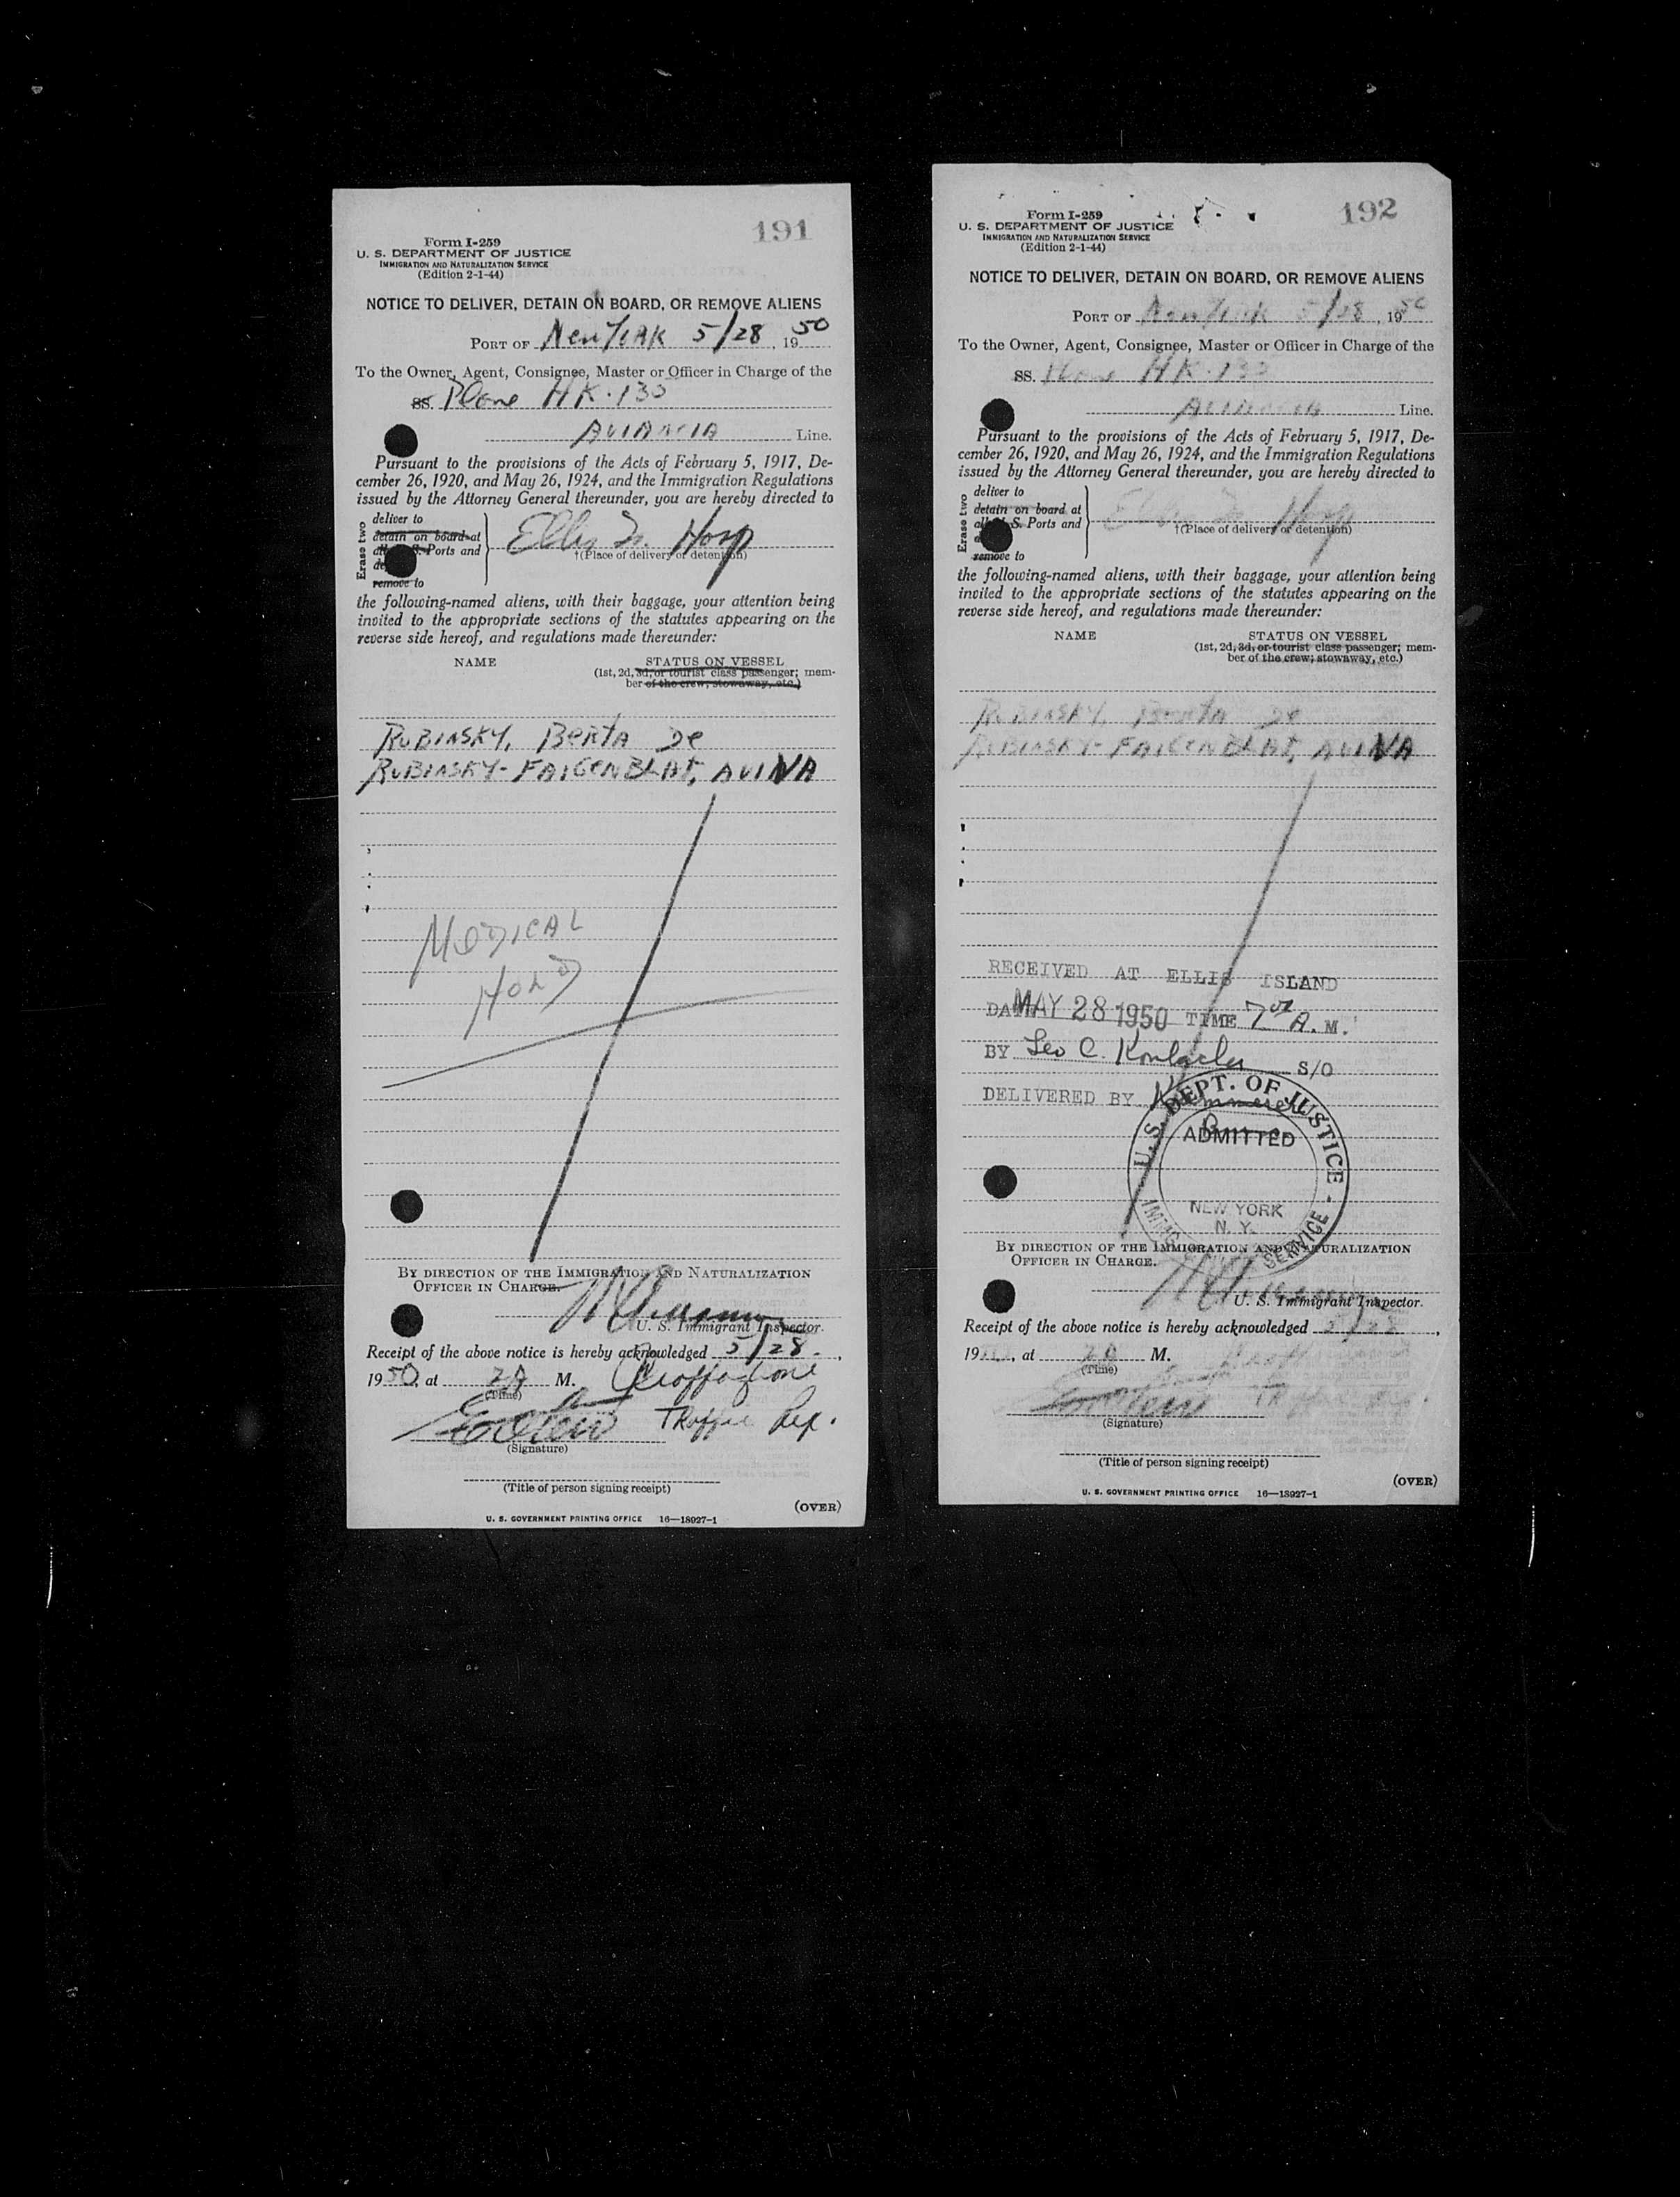 191
Form I-259
U. S. DEPARTMENT OF JUSTICE
IMMIGRATION AND NATURALIZATION SERVICE
(Edition 2-1-44)
NOTICE TO DELIVER, DETAIN ON BOARD, OR REMOVE ALIENS
PORT OF New York 5/28, 1950
To the Owner, Agent, Consignee, Master or Officer in Charge of the
SS. Plane HK-133
AVIANCIA Line.
Pursuant to the provisions of the Acts of February 5, 1917, De-
cember 26, 1920, and May 26, 1924, and the Immigration Regulations
issued by the Attorney General thereunder, you are hereby directed to
Erase two
deliver to
detain on board at
all U. S. Ports and
remove to
Ellis Is. Hosp
†(Place of delivery or detention)
the following-named aliens, with their baggage, your attention being
invited to the appropriate sections of the statutes appearing on the
reverse side hereof, and regulations made thereunder:
NAME
STATUS ON VESSEL
(1st, 2d, 3d, or tourist class passenger; mem-
ber of the crew; stowaway, etc.)
RUBINSKY, BERTA De
RUBINSKY-FAIGENBLAT, AVINA
MEDICAL
HOLD
BY DIRECTION OF THE IMMIGRATION AND NATURALIZATION
OFFICER IN CHARGE.
U. S. Immigrant Inspector.
Receipt of the above notice is hereby acknowledged 5/28,
1950, at 2A M.
(Time)
Traffic Rep.
(Signature)
(Title of person signing receipt)
(OVER)
U. S. GOVERNMENT PRINTING OFFICE 16—18927-1
192
Form I-259
U. S. DEPARTMENT OF JUSTICE
IMMIGRATION AND NATURALIZATION SERVICE
(Edition 2-1-44)
NOTICE TO DELIVER, DETAIN ON BOARD, OR REMOVE ALIENS
PORT OF New York 5/28, 1950
To the Owner, Agent, Consignee, Master or Officer in Charge of the
SS. Plane HK-133
AVIANCIA Line.
Pursuant to the provisions of the Acts of February 5, 1917, De-
cember 26, 1920, and May 26, 1924, and the Immigration Regulations
issued by the Attorney General thereunder, you are hereby directed to
Erase two
deliver to
detain on board at
all U. S. Ports and
remove to
Ellis Is. Hosp
†(Place of delivery or detention)
the following-named aliens, with their baggage, your attention being
invited to the appropriate sections of the statutes appearing on the
reverse side hereof, and regulations made thereunder:
NAME
STATUS ON VESSEL
(1st, 2d, 3d, or tourist class passenger; mem-
ber of the crew; stowaway, etc.)
RUBINSKY, BERTA De
RUBINSKY-FAIGENBLAT, AVINA
RECEIVED AT ELLIS ISLAND
DATE MAY 28 1950 TIME 7 01 A. M.
BY Leo C. S/O
DELIVERED BY
U. S. DEPT. OF JUSTICE
ADMITTED
NEW YORK
N. Y.
IMMIG SERVICE
BY DIRECTION OF THE IMMIGRATION AND NATURALIZATION
OFFICER IN CHARGE.
U. S. Immigrant Inspector.
Receipt of the above notice is hereby acknowledged 5/28,
19, at 2A M.
(Time)
(Signature)
(Title of person signing receipt)
(OVER)
U. S. GOVERNMENT PRINTING OFFICE 16—18927-1